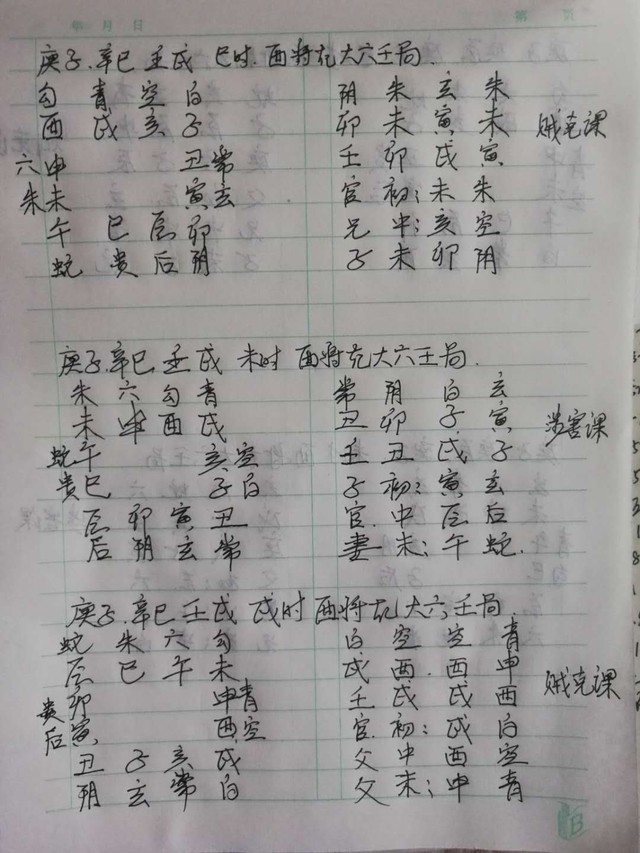 年 月 日 第 页
庚子.辛巳 壬戌 巳时.酉将克大六壬局.
勾 青 空 白 阴 朱 玄 朱
酉 戌 亥 子 卯 未 寅 未 贼克课
六 申 丑 常 壬 卯 戌 寅
朱 未 寅 玄 官 初: 未 朱
午 巳 辰 卯 兄 中: 亥 空
蛇 贵 后 阴 子 未 卯 阴
庚子.辛巳 壬戌 未时 酉将克大六壬局.
朱 六 勾 青 常 阴 白 玄
未 申 酉 戌 丑 卯 子 寅 涉害课
蛇 午 亥 空 壬 丑 戌 子
贵 巳 子 白 子 初: 寅 玄
辰 卯 寅 丑 官. 中 辰 后
后 阴 玄 常 妻 末: 午 蛇.
庚子.辛巳 壬戌 戌时 酉将克大六壬局.
蛇 朱 六 勾 白 空 空 青
辰 巳 午 未 戌 酉. 酉 申
贵 卯 申 青 壬 戌 戌 酉 贼克课
后 寅 酉 空 官. 初: 戌 白
丑 子 亥 戌 父 中 酉 空
阴 玄 常 白 父 末: 申 青